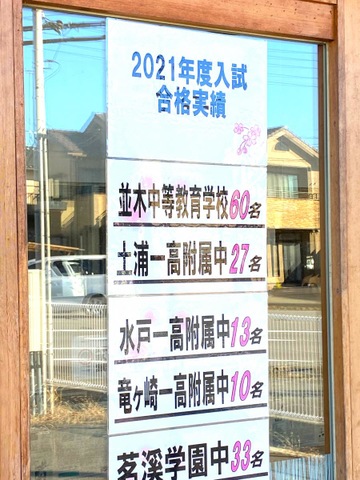 2021年度入試
合格実績
並木中等教育学校60名
土浦一高附属中27名
水戸一高附属中13名
竜ヶ崎一高附属中10名
茗溪学園中33名